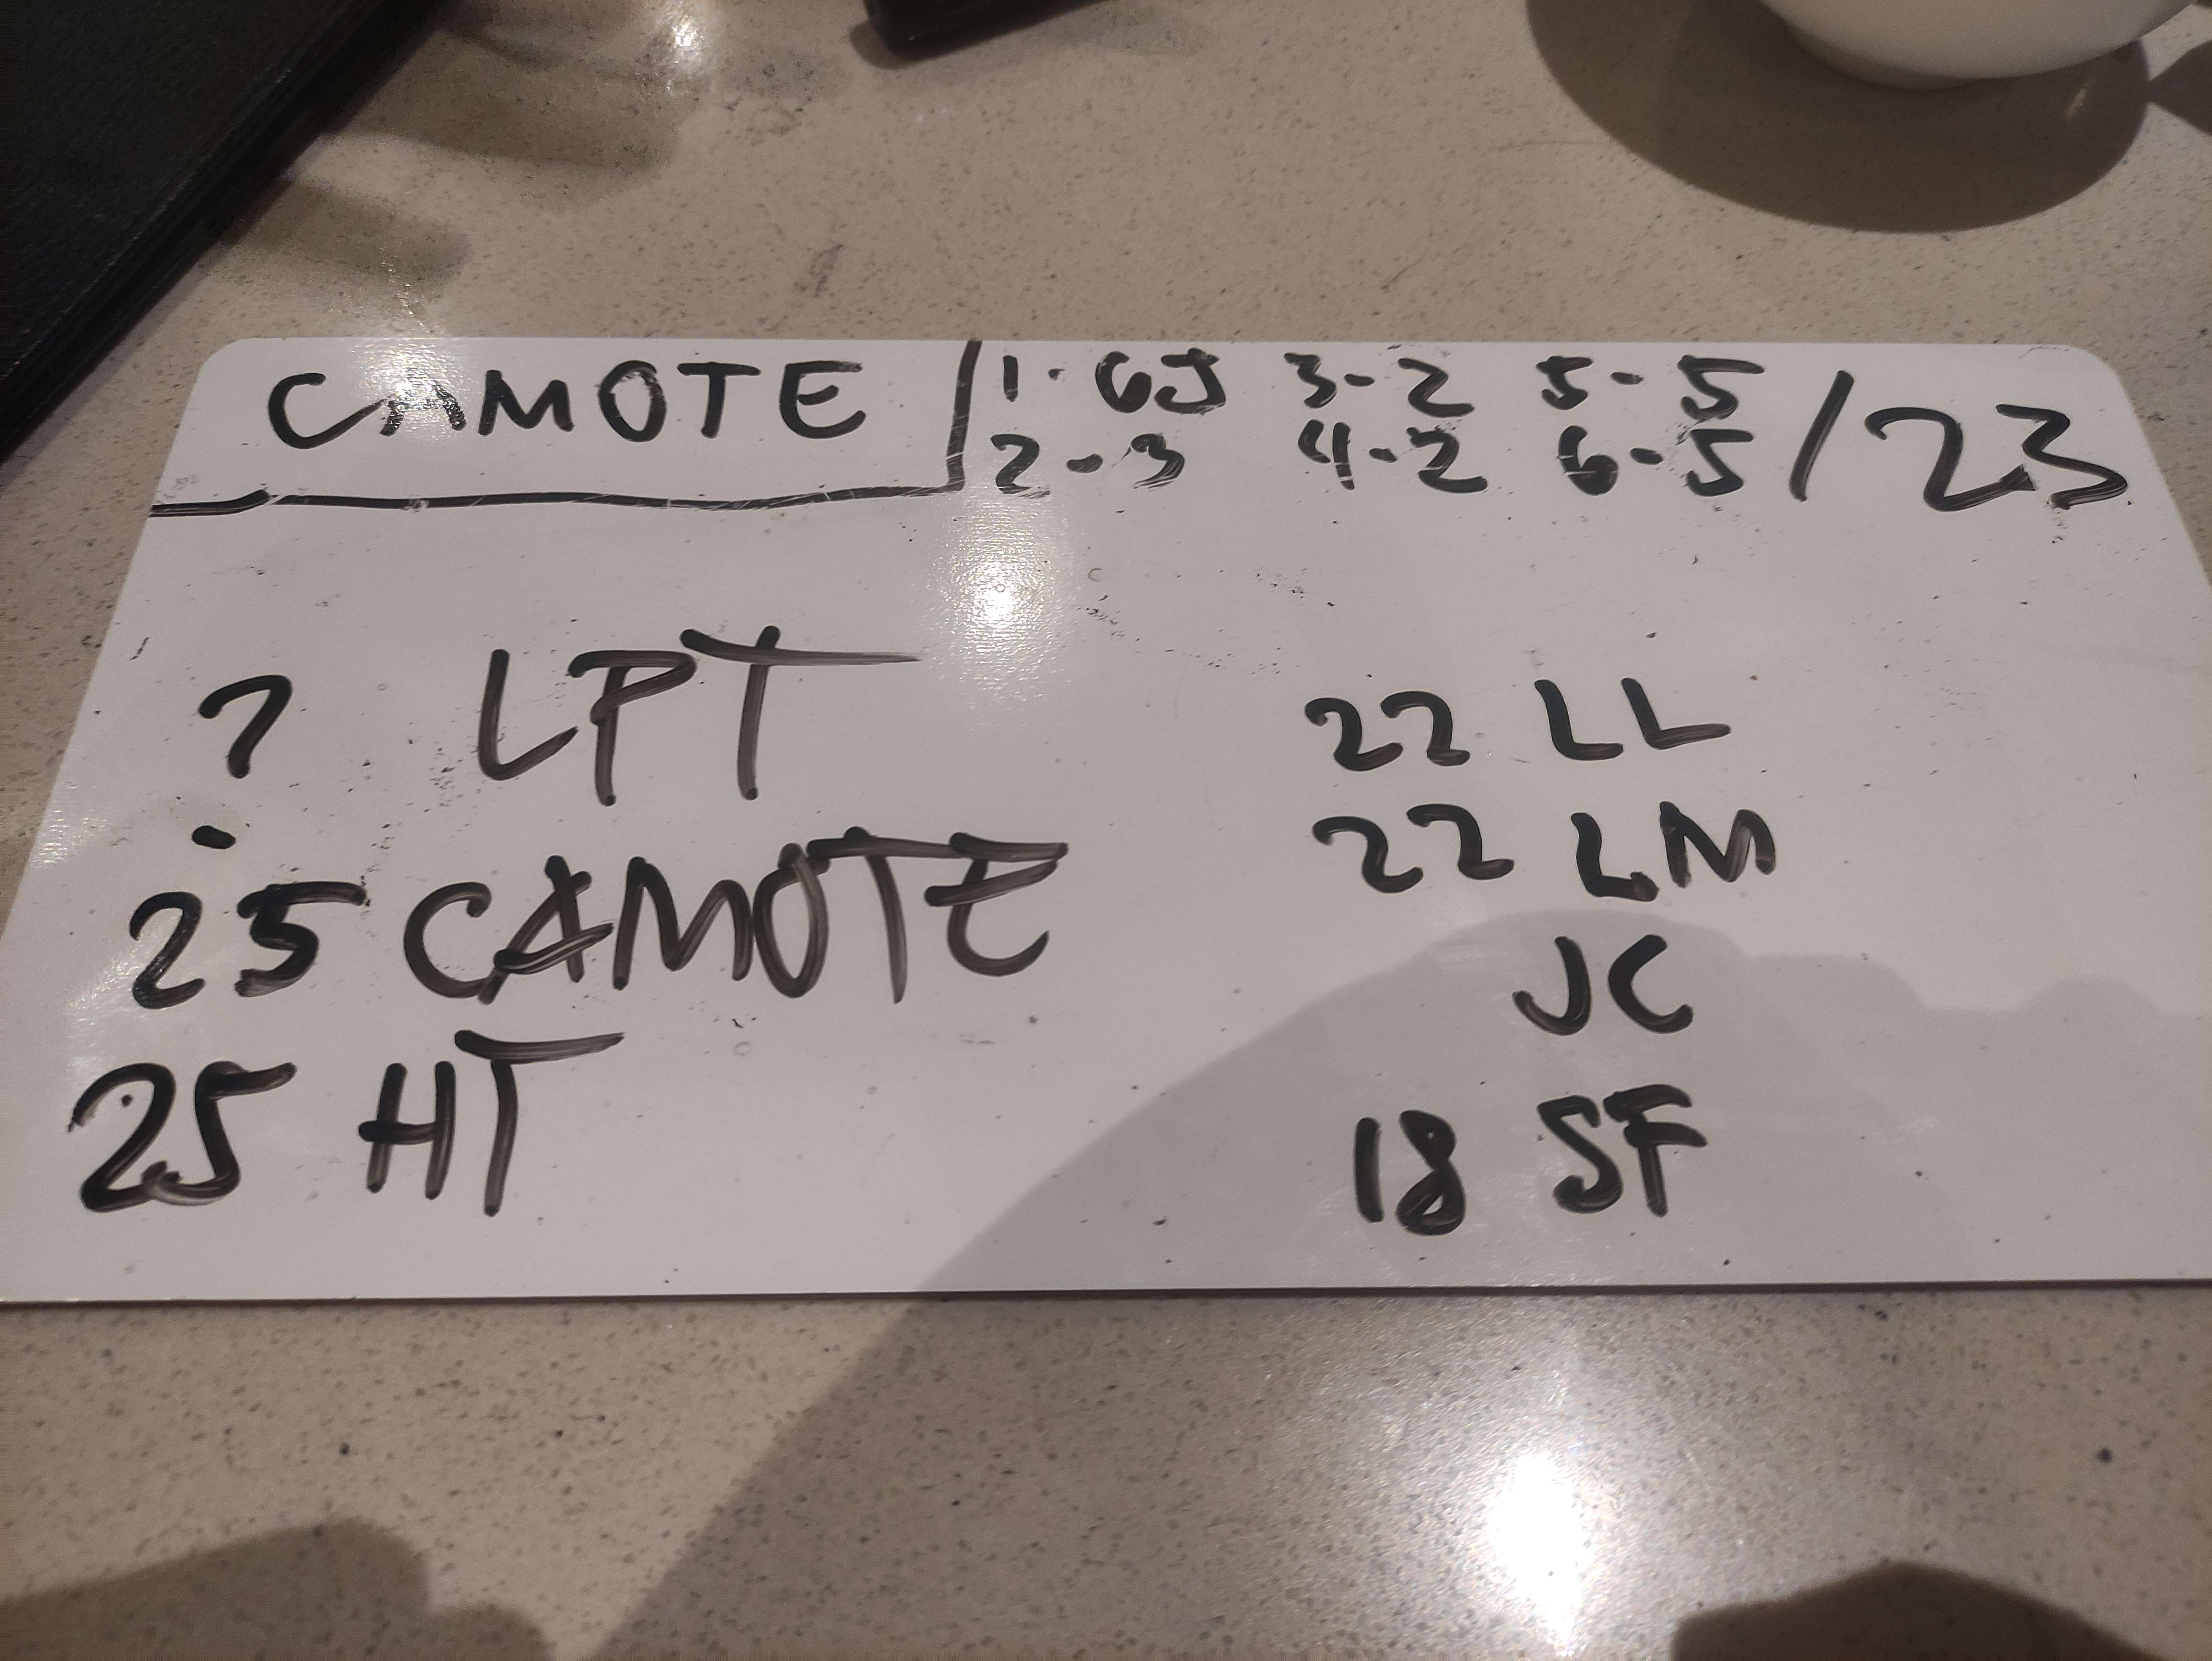 CAMOTE
1 - 6J 3-2 5-5 / 23
2-3 4-2 6-5
? LPT
25 CAMOTE
25 HT
22 LL
22 LM
JC
18 SF